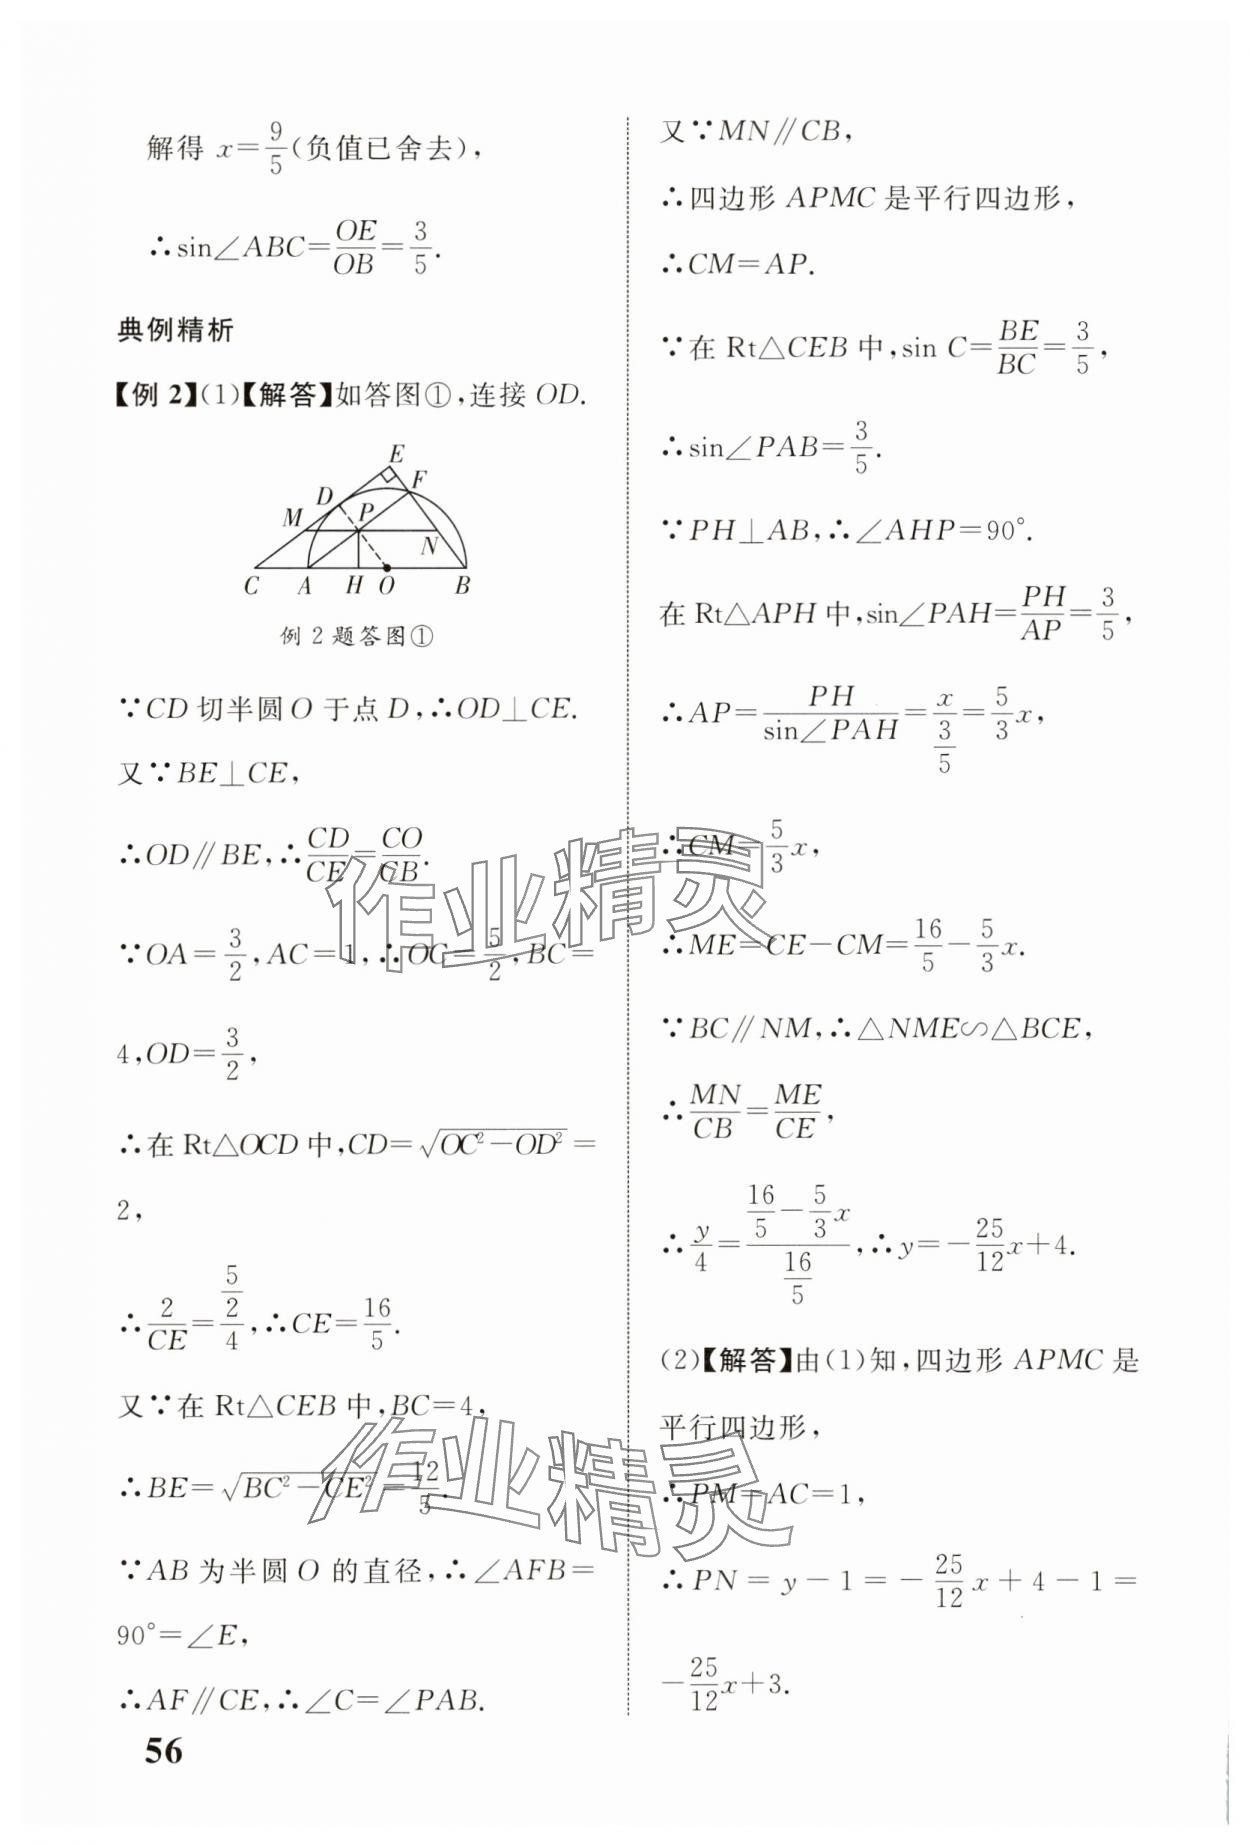 解得 x=9/5(负值已舍去),
∴sin∠ABC=OE/OB=3/5.
典例精析
【例 2】(1)【解答】如答图①,连接 OD.
E
F
D
P
M
N
C A H O B
例 2 题答图①
∵CD 切半圆 O 于点 D,∴OD⊥CE.
又∵BE⊥CE,
∴OD∥BE,∴CD/CE=CO/CB.
∵OA=3/2,AC=1,∴OC=5/2,BC=
4,OD=3/2,
∴在 Rt△OCD 中,CD=√(OC²-OD²)=
2,
∴2/CE=(5/2)/4,∴CE=16/5.
又∵在 Rt△CEB 中,BC=4,
∴BE=√(BC²-CE²)=12/5.
∵AB 为半圆 O 的直径,∴∠AFB=
90°=∠E,
∴AF∥CE,∴∠C=∠PAB.
56
又∵MN∥CB,
∴四边形 APMC 是平行四边形,
∴CM=AP.
∵在 Rt△CEB 中,sin C=BE/BC=3/5,
∴sin∠PAB=3/5.
∵PH⊥AB,∴∠AHP=90°.
在 Rt△APH 中,sin∠PAH=PH/AP=3/5,
∴AP=PH/sin∠PAH=x/(3/5)=5/3x,
∴CM=5/3x,
∴ME=CE-CM=16/5-5/3x.
∵BC∥NM,∴△NME∽△BCE,
∴MN/CB=ME/CE,
∴y/4=(16/5-5/3x)/(16/5),∴y=-25/12x+4.
(2)【解答】由(1)知,四边形 APMC 是
平行四边形,
∴PM=AC=1,
∴PN=y-1=-25/12x+4-1=
-25/12x+3.
作业精灵
作业精灵